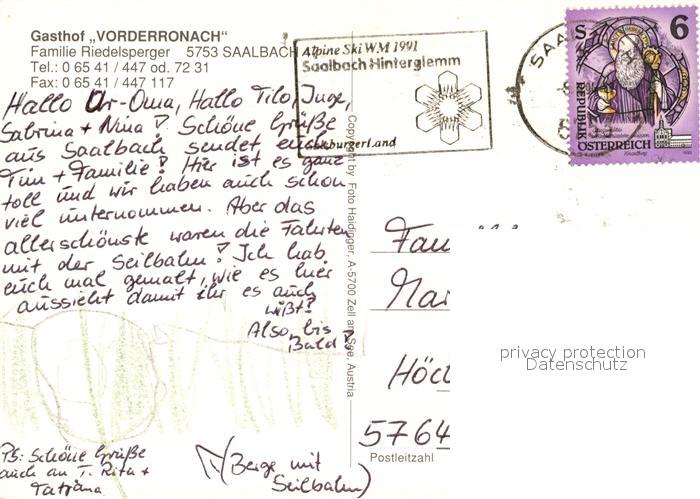 Gasthof „VORDERRONACH“
Familie Riedelsperger 5753 SAALBACH
Tel.: 0 65 41 / 447 od. 72 31
Fax: 0 65 41 / 447 117
Alpine Ski WM 1991
Saalbach Hinterglemm
SalzburgerLand
SAA
S 6
REPUBLIK
ÖSTERREICH
Hallo Ur-Oma, Hallo Tilo, Inge,
Sabrina + Nina! Schöne Grüße
aus Saalbach sendet euch
Tim + Familie! Hier ist es ganz
toll und wir haben auch schon
viel unternommen. Aber das
allerschönste waren die Fahrten
mit der Seilbahn! Ich hab
euch mal gemalt, wie es hier
aussieht damit ihr es auch
wißt!
Also, bis
Bald!
PS: Schöne Grüße
auch an T. Rita +
Tatjana
(Berge mit
Seilbahn)
Copyright by Foto Haidinger, A-5700 Zell am See, Austria
Fam
Mar
Höch
5764
Postleitzahl
privacy protection
Datenschutz